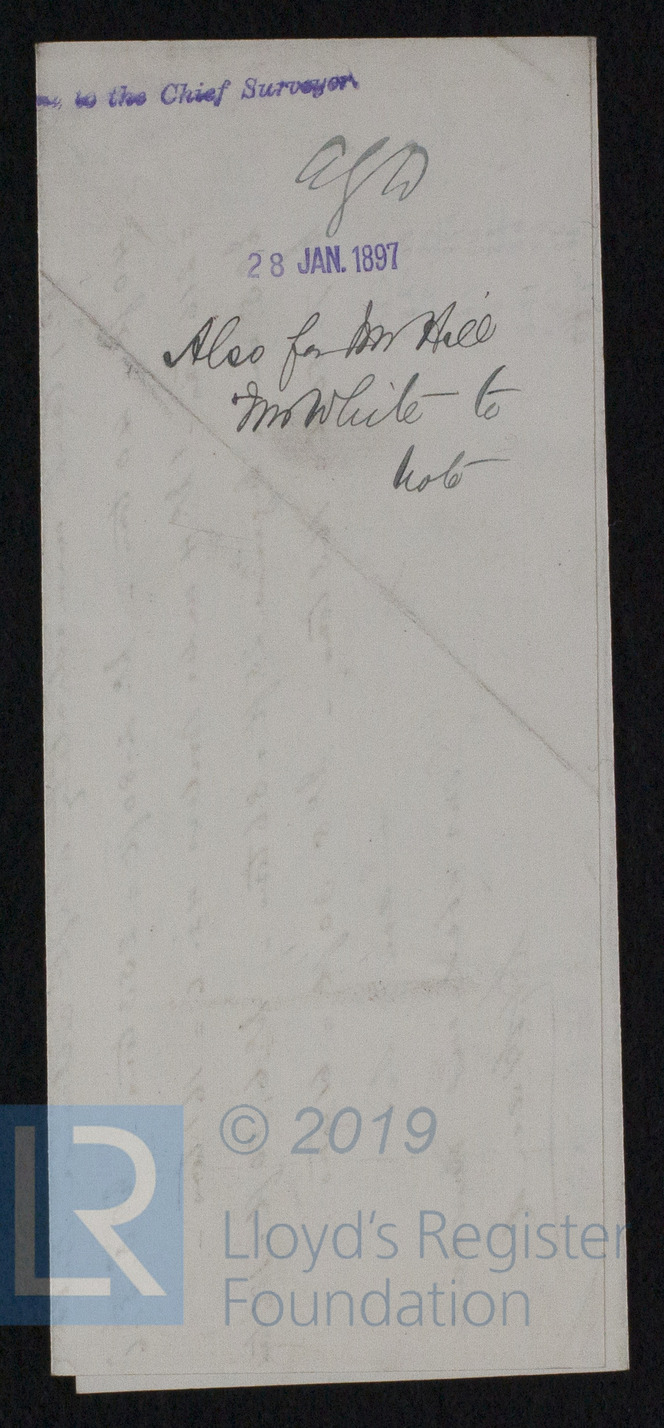 to the Chief Surveyor
28 JAN. 1897
Also for Mr Hill
Mr White to
note
© 2019
LR
Lloyd's Register
Foundation